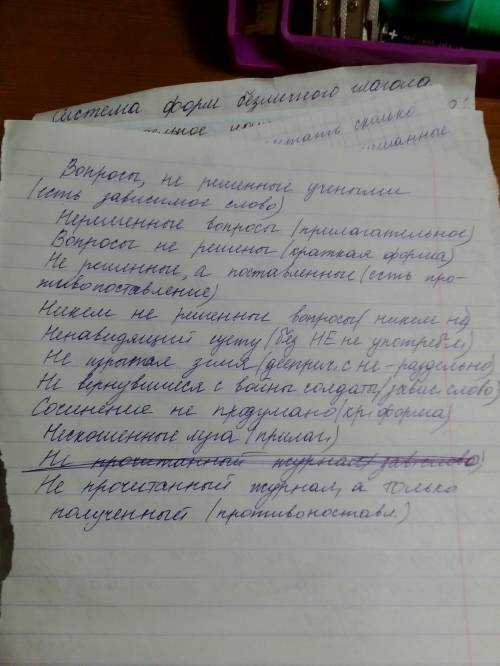 система форм безличного глагола
читать сколько
Вопросы, не решенные учеными
(есть зависимое слово)
Нерешенные вопросы (прилагательное)
Вопросы не решены (краткая форма)
Не решенные, а поставленные (есть про-
тивопоставление)
Никем не решенные вопросы (никем не)
Ненавидящий суету (без НЕ не употребл)
Не изрытая змия (дееприч. с не - раздельно)
Не вернувшиеся с войны солдаты (завис слово)
Сочинение не продумано (кр. форма)
Нескошенные луга (прилаг)
Не прочитанный журнал (зав слово)
Не прочитанный журнал, а только
полученный (противопоставл.)